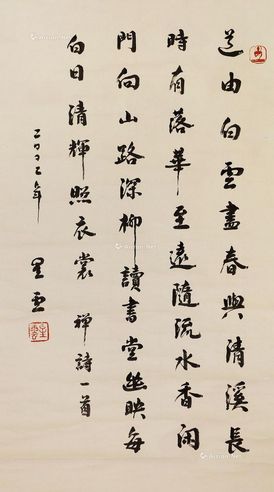 道由白雲盡春與清溪長
時有落華至遠隨流水香閑
門向山路深柳讀書堂幽映每
白日清輝照衣裳 禪詩一首
星雲